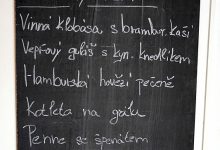 Vinná klobása s brambor. kaší
Vepřový guláš s kyn. knedlíkem
Hamburská hovězí pečeně
Kotleta na grilu
Penne se špenátem